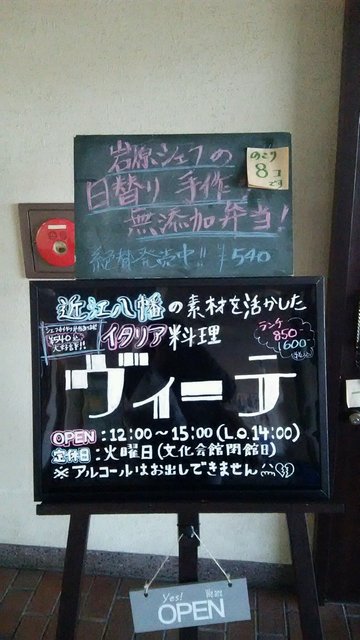 岩原シェフの
日替り 手作
無添加弁当!
絶賛発売中!! ¥540
のこり
8コ
です
近江八幡の素材を活かした
イタリア料理
¥540に
ランチ
850
1600
ヴィーテ
OPEN:12:00~15:00(L.O.14:00)
定休日:火曜日(文化会館閉館日)
※アルコールはお出しできません
Yes! We are
OPEN